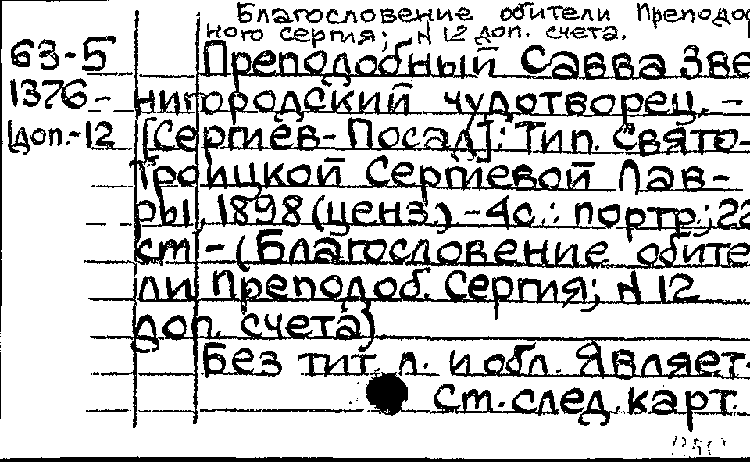 Благословение обители Преподоб
ного Сергия; N 12 доп. счета.
63-5 Преподобный Савва Зве
1376- нигородский чудотворец. -
доп.-12 [Сергиев-Посад]: Тип. Свято-
Троицкой Сергиевой Лав-
ры, 1898 (ценз.) - 4с.: портр.; 22
ст - (Благословение обите
ли Преподоб. Сергия; N 12
доп. счета)
Без тит. л. и обл. Являет-
Ст. след. карт.